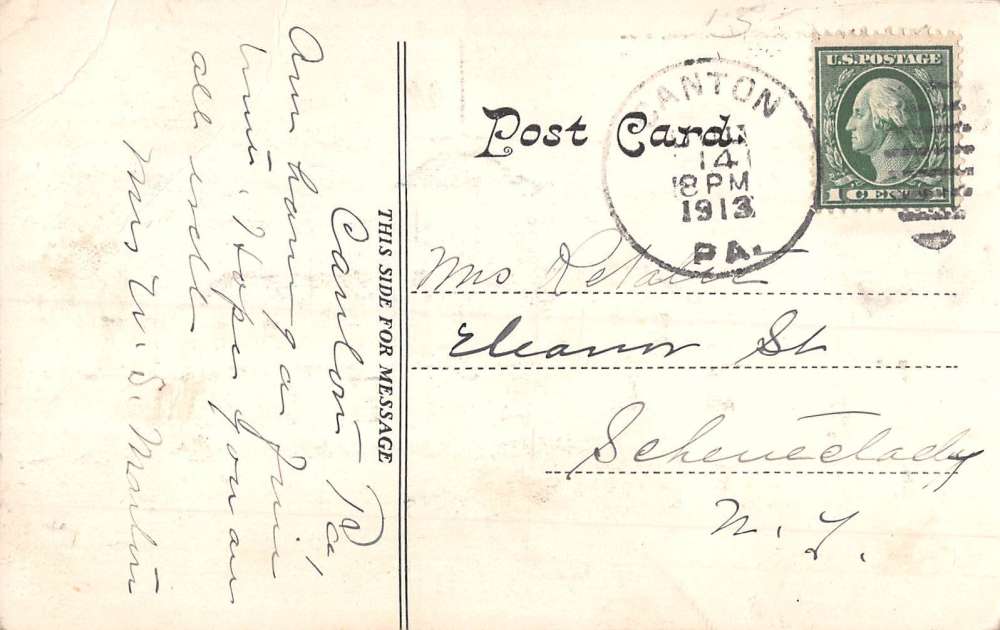 Canton Pa,
Am having a fine
time. Hope you are
all well
Mrs W. S. Martin
THIS SIDE FOR MESSAGE
Post Card
CANTON
14
8 PM
1913
PA.
U.S. POSTAGE
1 CENT 1
Mrs
Eleanor St
Schenectady
N. Y.